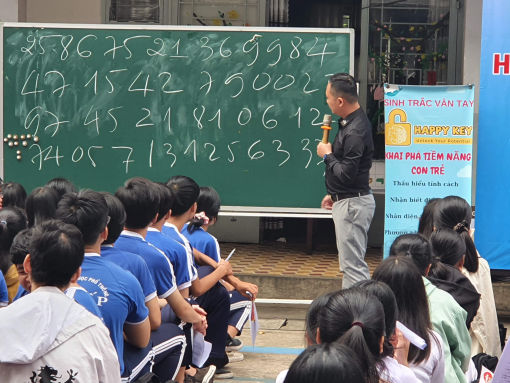 25 86 75 21 36 9 9 84
47 15 42 79002
67 45 21 81 06 12
74 05 7 13125633
SINH TRẮC VÂN TAY
HAPPY KEY
Unlock Your Potential
KHAI PHÁ TIỀM NĂNG
CON TRẺ
Thấu hiểu tính cách
Nhận biết
Nhận diện
H